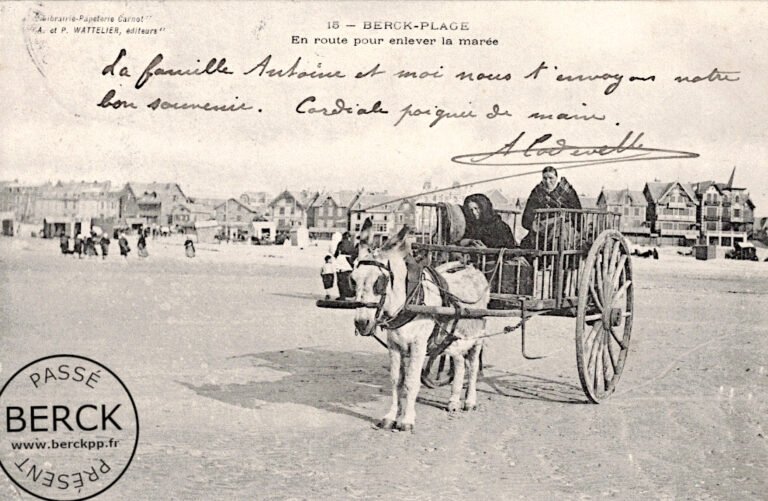 Librairie-Papeterie Carnot
A. et P. WATTELIER, éditeurs
15 — BERCK-PLAGE
En route pour enlever la marée
La famille Antoine et moi nous t'envoyons notre
bon souvenir. Cordiale poignée de main.
PASSÉ
BERCK
www.berckpp.fr
PRÉSENT